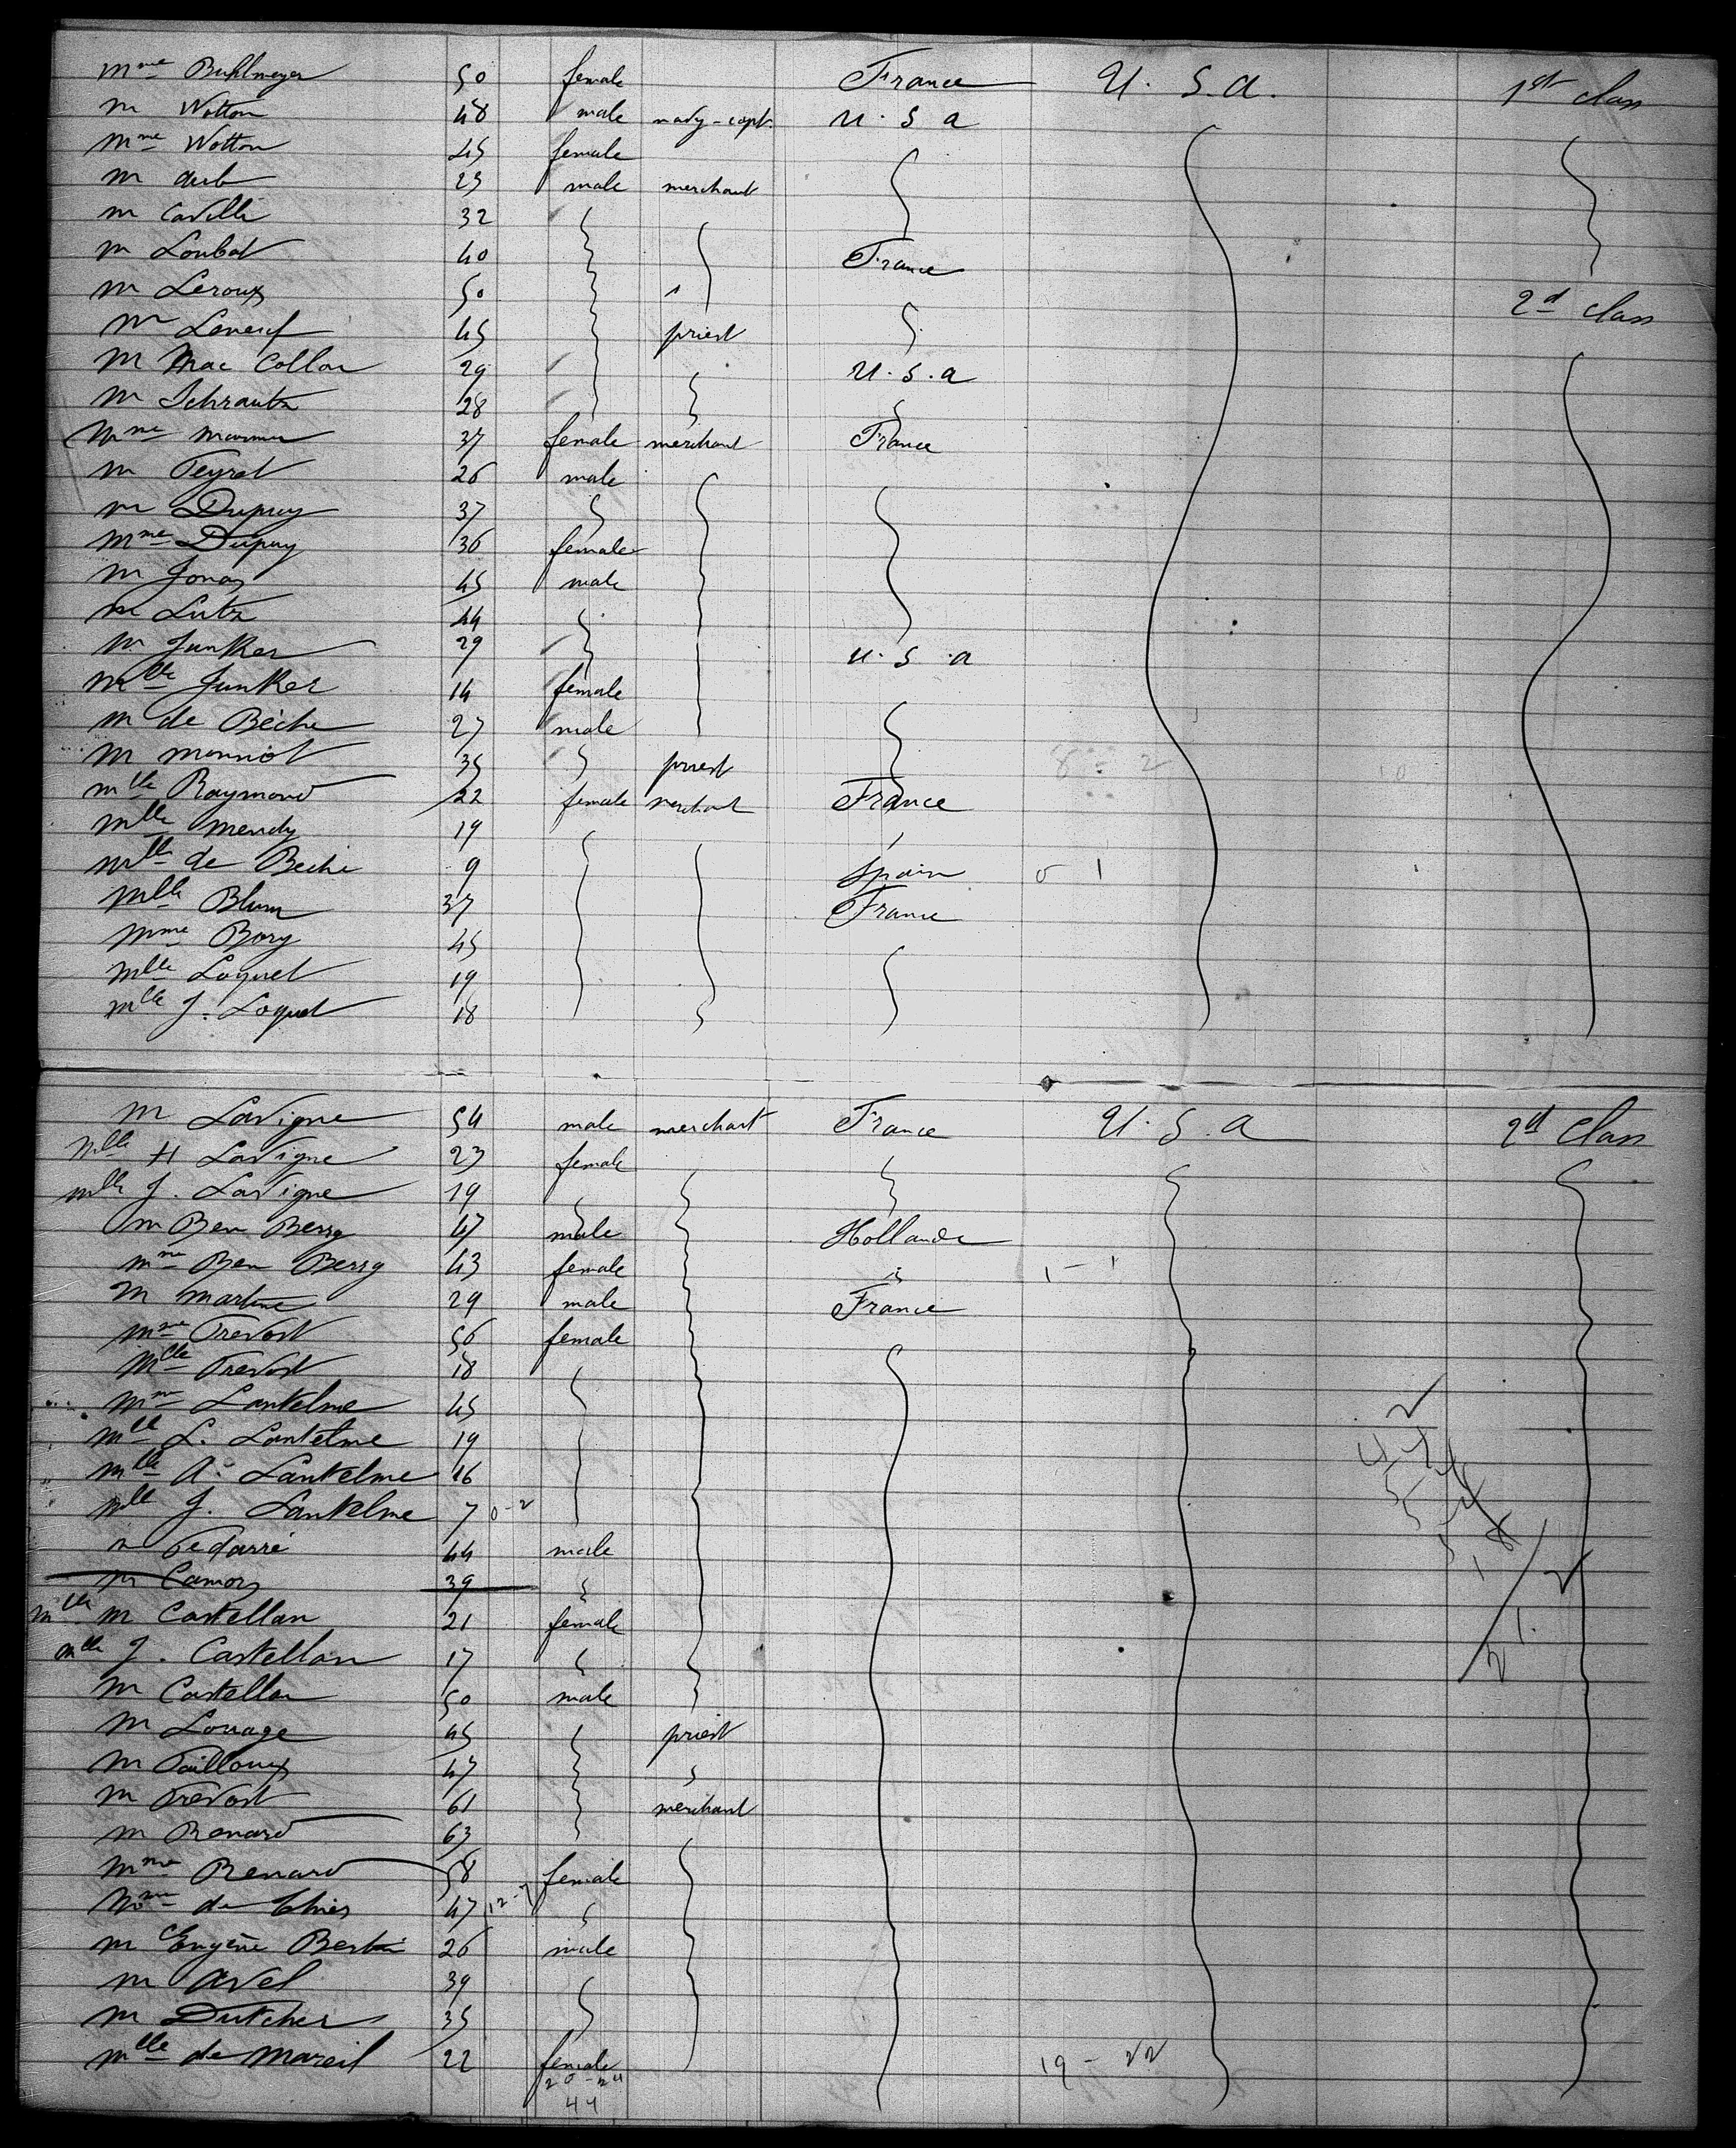 Mme Buhlmeyer 50 female France U. S. A. 1st class
M Wotton 48 male navy-capt. U. S A
Mme Wotton 45 female
M 23 male merchant
M Cavilli 32
M Loubat 40 France
M Leroux 50 2d class
M Leneuf 45 priest
M Mac Collar 29 U. S. A
M Schrautz 28
Mme 37 female merchant France
M Teyrat 26 male
M Dupuy 37
Mme Dupuy 36 female
M Jonas 45 male
M Lutz 44
M Junker 29 U. S. A
Mlle Junker 14 female
M de Bèche 27 male
M Monniot 35 priest 8 - 2 10
Mlle Raymond 22 female merchant France
Mlle Mendy 19
Mlle de Beche 9 Spain 0 1
Mlle Blum 37 France
Mme Bory 45
Mlle Loquet 19
Mlle J. Loquet 18
M Lavigne 54 male merchant France U. S. A 2d class
Mlle H Lavigne 23 female
Mlle J. Lavigne 19
M Ben Berrg 47 male Hollande
Mme Ben Berrg 43 female 1 - 1
M Martine 29 male France
Mme Prevost 56 female
Mlle Prevost 18
Mme Lantelme 45
Mlle L. Lantelme 19
Mlle A. Lantelme 16
Mlle J. Lantelme 7 0-2
M 44 male
M Camors 39
Mlle M Castellan 21 female
Mlle J. Castellan 17
M Castellan 50 male
M Louage 45 priest
M Pailloux 47
M Prevost 61 merchant
M Renard 63
Mme Renard 58 female
Mme de 47 12-7
M Eugène Bertin 26 male
M Avel 39
M Dutcher 35
Mlle de Mareil 22 female 19 - 22
20 - 24
44